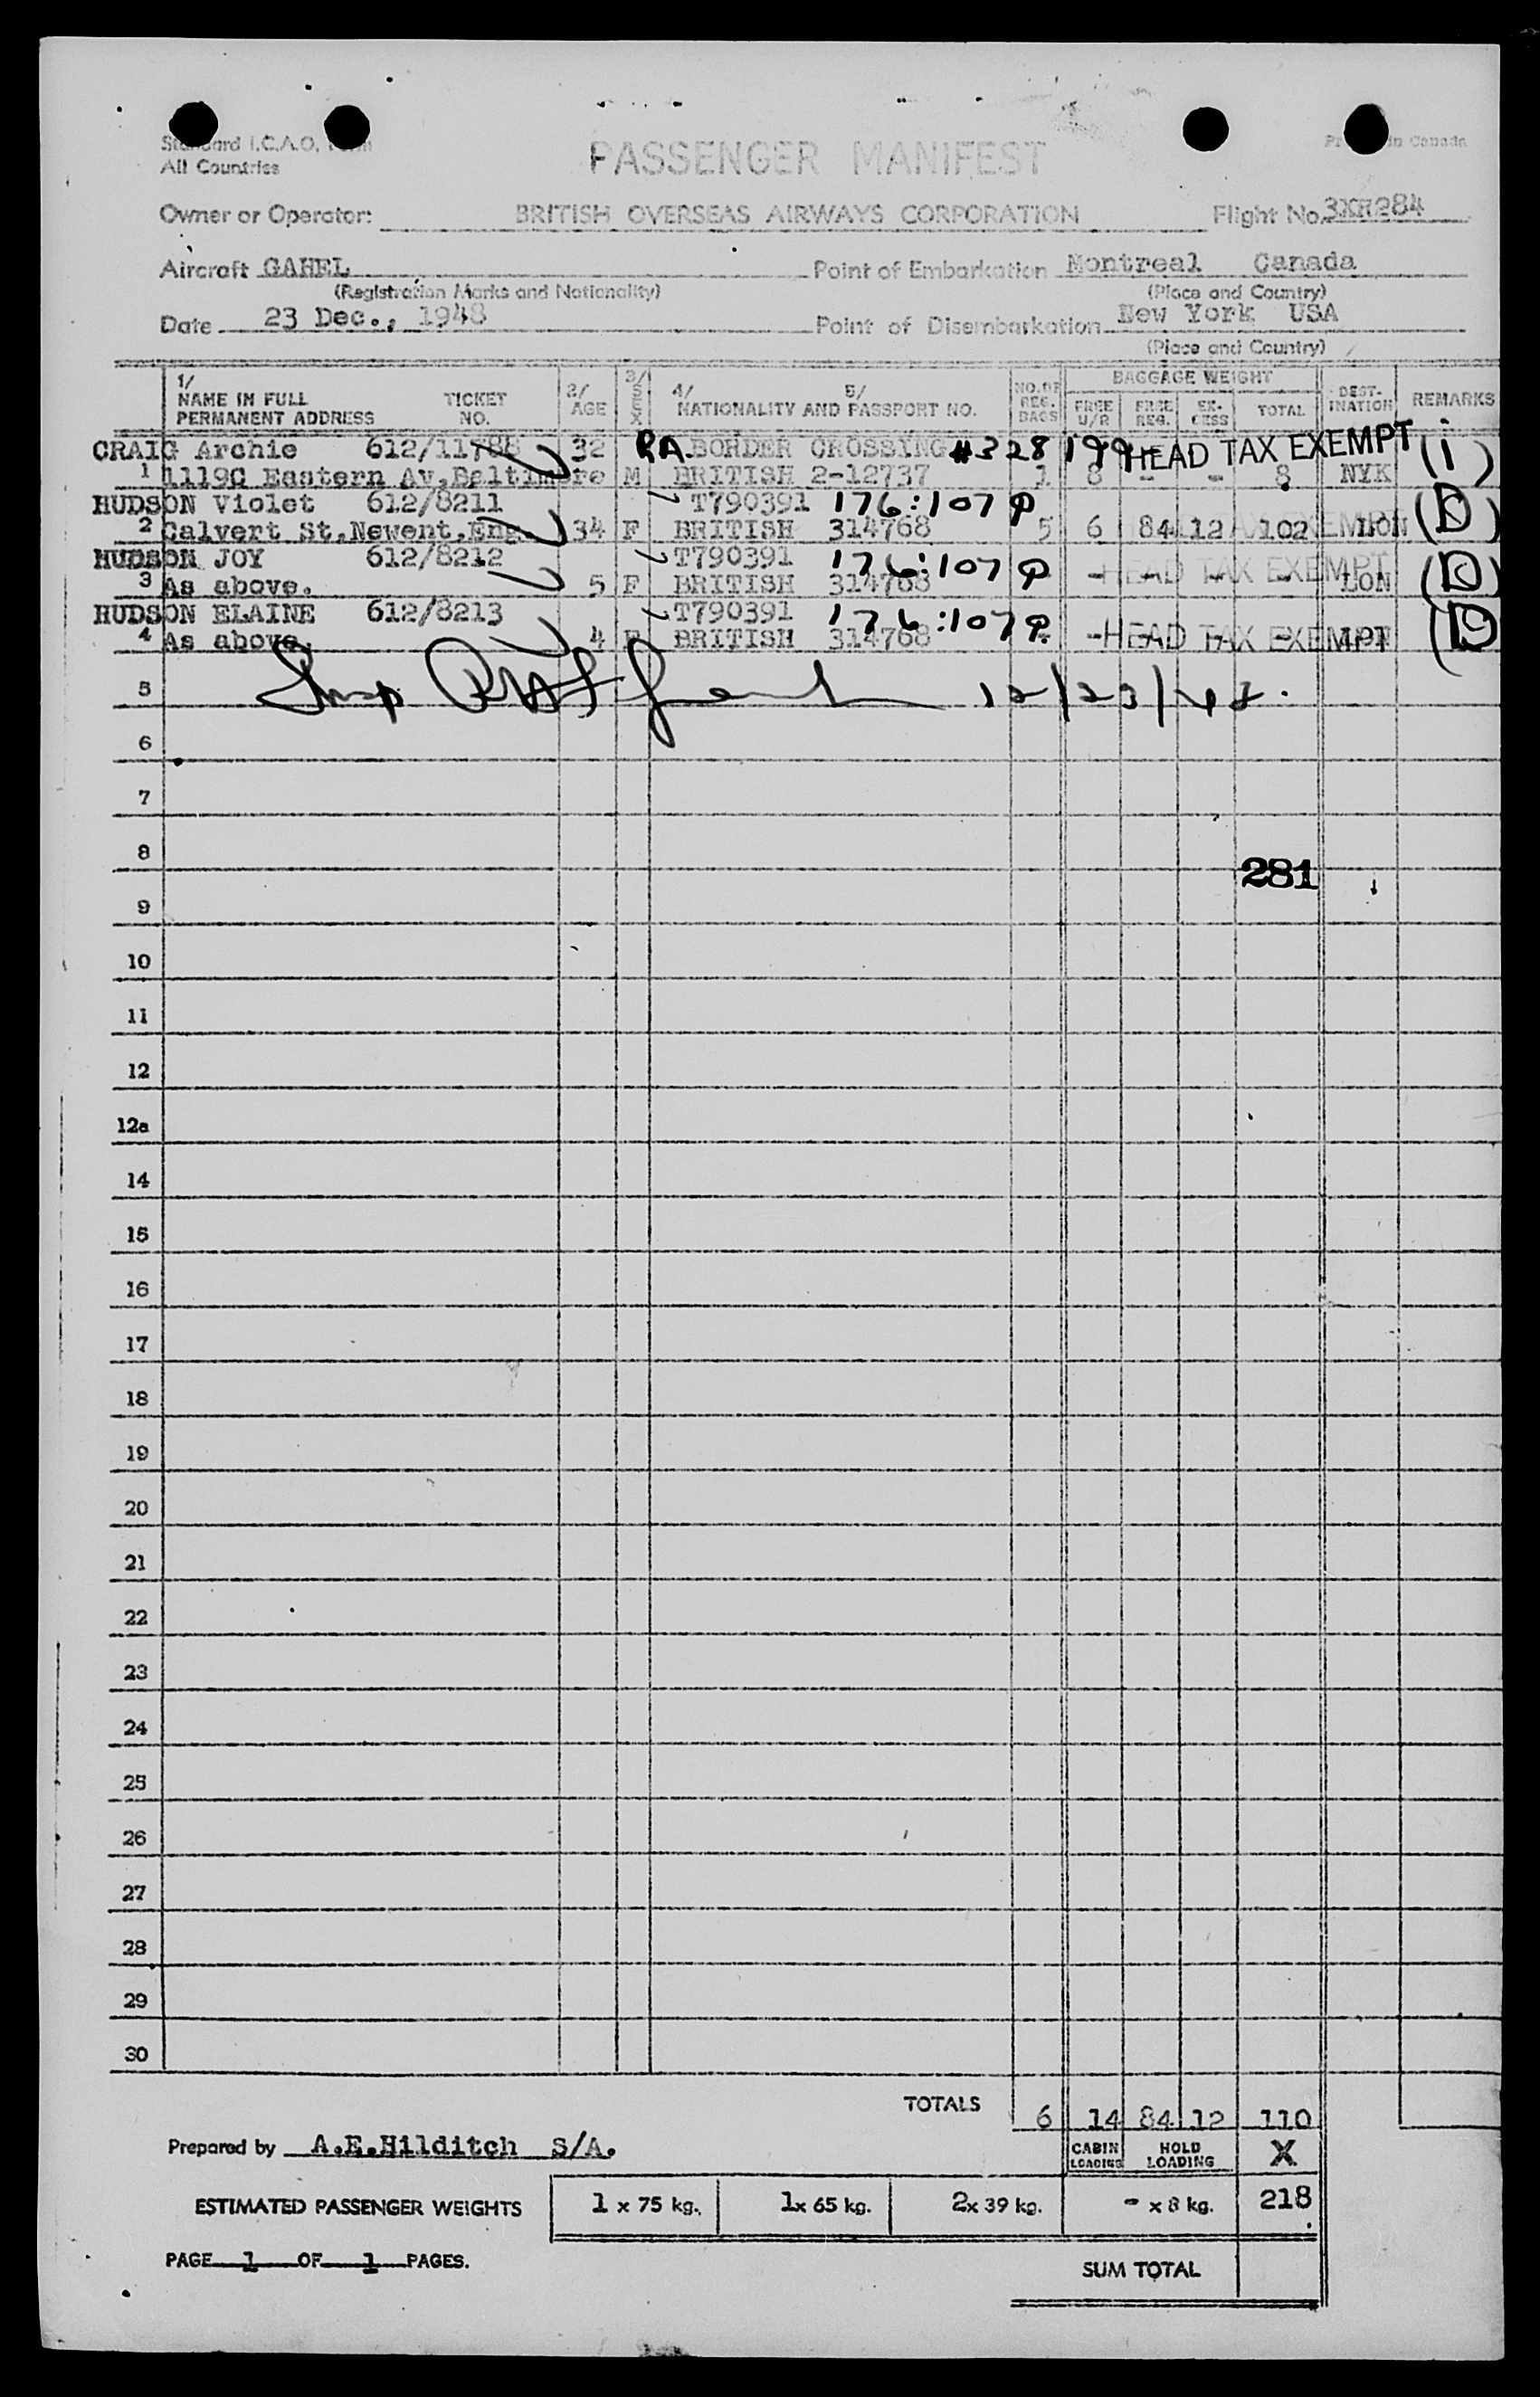 Standard I.C.A.O. Form
All Countries
PASSENGER MANIFEST
Printed in Canada
Owner or Operator: BRITISH OVERSEAS AIRWAYS CORPORATION Flight No. 3XH284
Aircraft GAHEL Point of Embarkation Montreal Canada
(Registration Marks and Nationality) (Place and Country)
Date 23 Dec., 1948 Point of Disembarkation New York USA
(Place and Country)
1/ NAME IN FULL PERMANENT ADDRESS TICKET NO. 2/ AGE 3/ SEX 4/ 5/ NATIONALITY AND PASSPORT NO. NO. OF REG. BAGS BAGGAGE WEIGHT FREE U/R FREE REG. EX-CESS TOTAL DEST-INATION REMARKS
CRAIG Archie 612/11788 32 RA. BORDER CROSSING #328 199 HEAD TAX EXEMPT (i)
1 1119C Eastern Av, Baltimore M BRITISH 2-12737 1 8 - - 8 NYK
HUDSON Violet 612/8211 T790391 176:107 P
2 Calvert St, Newent, Eng. 34 F BRITISH 314768 5 6 84 12 102 LON (D)
HUDSON JOY 612/8212 T790391 176:107 P HEAD TAX EXEMPT
3 As above. 5 F BRITISH 314768 - - - - LON (D)
HUDSON ELAINE 612/8213 T790391 176:107 P
4 As above. 4 F BRITISH 314768 - - HEAD TAX EXEMPT (D)
5 12/23/48.
6
7
8
281
9
10
11
12
12a
14
15
16
17
18
19
20
21
22
23
24
25
26
27
28
29
30
TOTALS 6 14 84 12 110
Prepared by A.E.Hilditch S/A. CABIN LOADING HOLD LOADING X
ESTIMATED PASSENGER WEIGHTS 1 x 75 kg. 1x 65 kg. 2x 39 kg. - x 8 kg. 218
PAGE 1 OF 1 PAGES.
SUM TOTAL